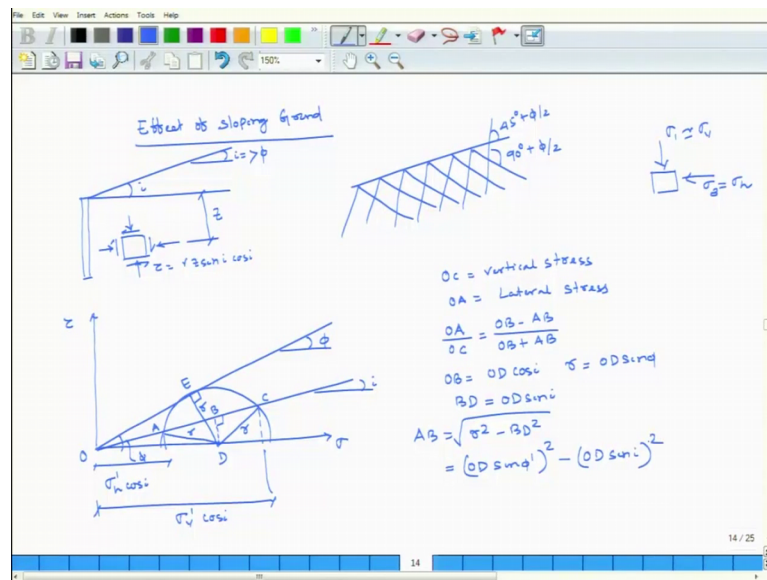 File Edit View Insert Actions Tools Help
B I
150%
Effect of Sloping Ground
i=>φ
i
z
τ = γ z sin i cos i
45°+φ/2
90°+φ/2
σ1 ≃ σv
σ3 = σh
OC = vertical stress
OA = Lateral stress
OA/OC = (OB - AB)/(OB + AB)
OB = OD cosi r = OD sinφ
BD = OD sini
AB = √(r² - BD²)
= (OD sinφ')² - (OD sini)²
τ
φ
i
E
r
B
C
A
r
r
O
D
σ
σ'h cosi
σ'v cosi
14 / 25
14